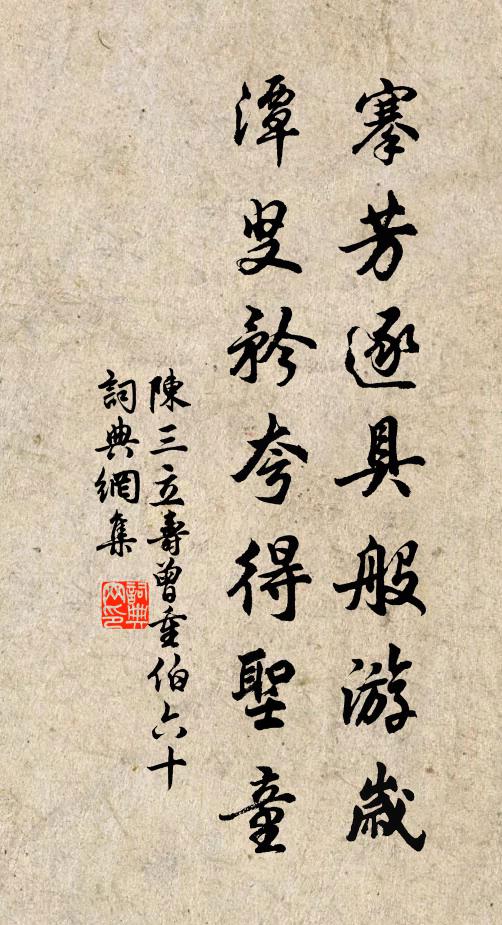 搴芳逐具般游歲
潭叟矜夸得聖童
陳三立壽曾重伯六十
詞典網集
詞典
网印